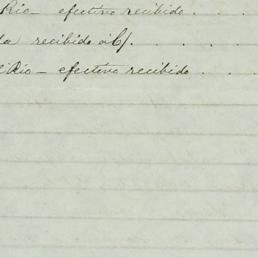 Rio — efectivo recibido . . . .
recibido á C/. . . . .
Rio — efectivo recibido . . .